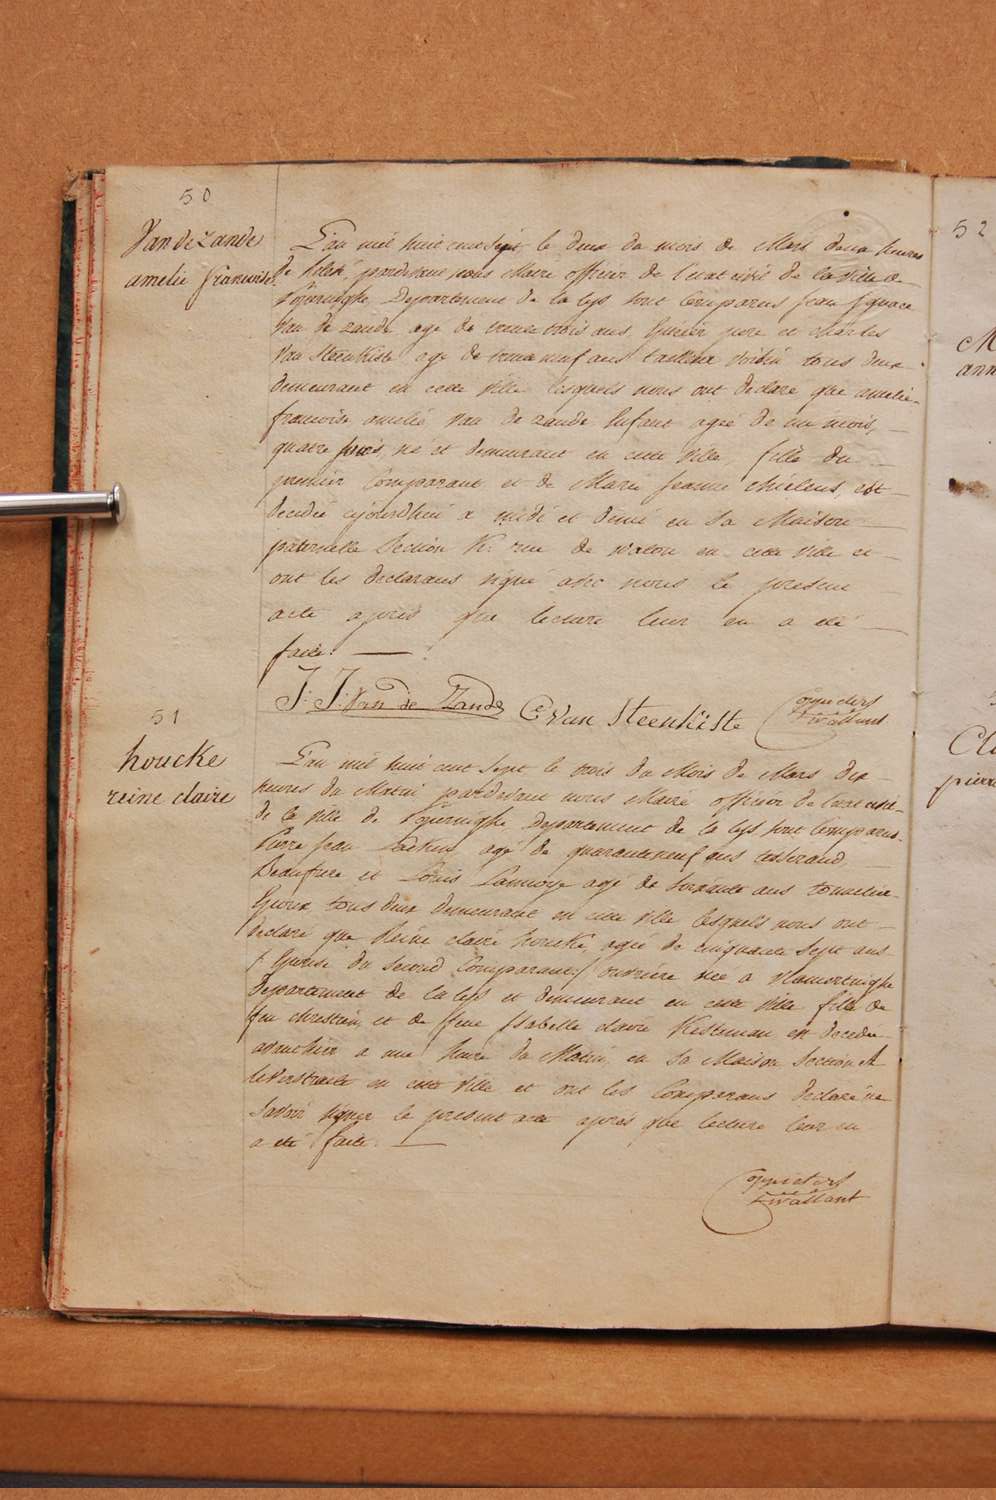 50
Van de Zande
amelie francoise
L'an mil huit cent sept le deux du mois de Mars deux heures
de pardevant nous Maire officier de l'etat civil de la ville de
Poperinghe Departement de la Lys sont Comparus Jean Ignace
Van de zande agé de trente trois ans, père et charles
Van Steenkiste age de trente neuf ans voisin tous deux
demeurant en cette ville lesquels nous ont declaré que amelie
francoise amelie Van de zande Enfant agé de un mois,
quatre jours, né et demeurant en cette ville, fille du
premier Comparant et de Marie Jeanne est
decedée ajourdhui a midi et demi en sa Maison
paternelle Section K: rue de waton en cette ville et
ont les declarans signé avec nous le present
acte après que lecture leur en a été
faite.
J: J: Van de Zande C Van Steenkiste
51
houcke
reine claire
L'an mil huit cent sept le trois du Mois de Mars dix
heures du Matin pardevant nous Maire officier de l'etat civil
de la ville de Poperinghe Departement de la Lys sont Comparus
Pierre Jean agé de quaranteneuf ans tisserand,
Beaufrere et Louis Lannoye agé de soixante ans tonnelier
Epoux tous deux demeurant en cette ville lesquels nous ont
declaré que Reine claire houcke, agée de cinquante sept ans
Epouse du second Comparant ouvrière née a Vlamertinghe
Departement de la Lys et demeurant en cette ville fille de
feu chrestien, et de feue Isabelle claire Kesteman est decedée
avanthier a une heure du Matin en sa Maison Section A
en cette ville et ont les Comparans declaré ne
savoir signer le present acte après que lecture leur en
a été faite.
52